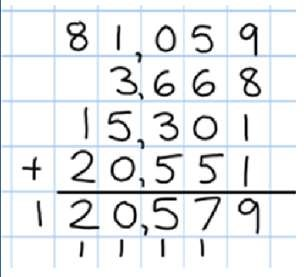 81,059
3,668
15,301
+ 20,551
120,579
1 1 1 1